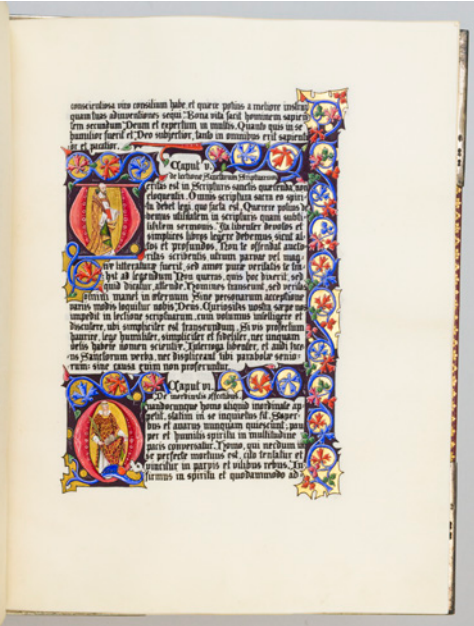 conscientioso viro consilium habe, et quaere potius a meliore instrui,
quam tuas adinventiones sequi. Bona vita facit hominem sapien=
tem secundum Deum et expertum in multis. Quanto quis in se
humilior fuerit et Deo subjectior, tanto in omnibus erit sapienti
or et pacatior.
Caput v.
de lectione Sanctarum Scripturarum
Veritas est in Scripturis sanctis quaerenda, non
eloquentia. Omnis scriptura sacra eo spiri=
tu debet legi, quo facta est. Quaerere potius de=
bemus utilitatem in scripturis quam subti=
litatem sermonis. Ita libenter devotos et
simplices libros legere debemus, sicut al=
tos et profundos. Non te offendat aucto=
ritas scribentis, utrum parvae vel mag=
nae litteraturae fuerit, sed amor purae veritatis te tra=
hat ad legendum. Non quaeras, quis hoc dixerit, sed
quid dicatur, attende. Homines transeunt, sed veritas
Domini manet in aeternum. Sine personarum acceptione
variis modis loquitur nobis Deus. Curiositas nostra saepe nos
impedit in lectione scripturarum, cum volumus intelligere et
discutere, ubi simpliciter est transeundum. Si vis profectum
haurire, lege humiliter, simpliciter et fideliter, nec unquam
velis habere nomen scientiae. Interroga libenter, et audi tace
ns Sanctorum verba, nec displiceant tibi parabolae senio=
rum: sine causa enim non proferuntur.
Caput vi.
De inordinatis affectibus.
Quandocunque homo aliquid inordinate ap=
petit, statim in se inquietus fit. Super=
bus et avarus nunquam quiescunt; pau
per et humilis spiritu in multitudine
pacis conversatur. Homo, qui necdum in
se perfecte mortuus est, cito tentatur et
vincitur in parvis et vilibus rebus. In=
firmus in spiritu et quodammodo ad=